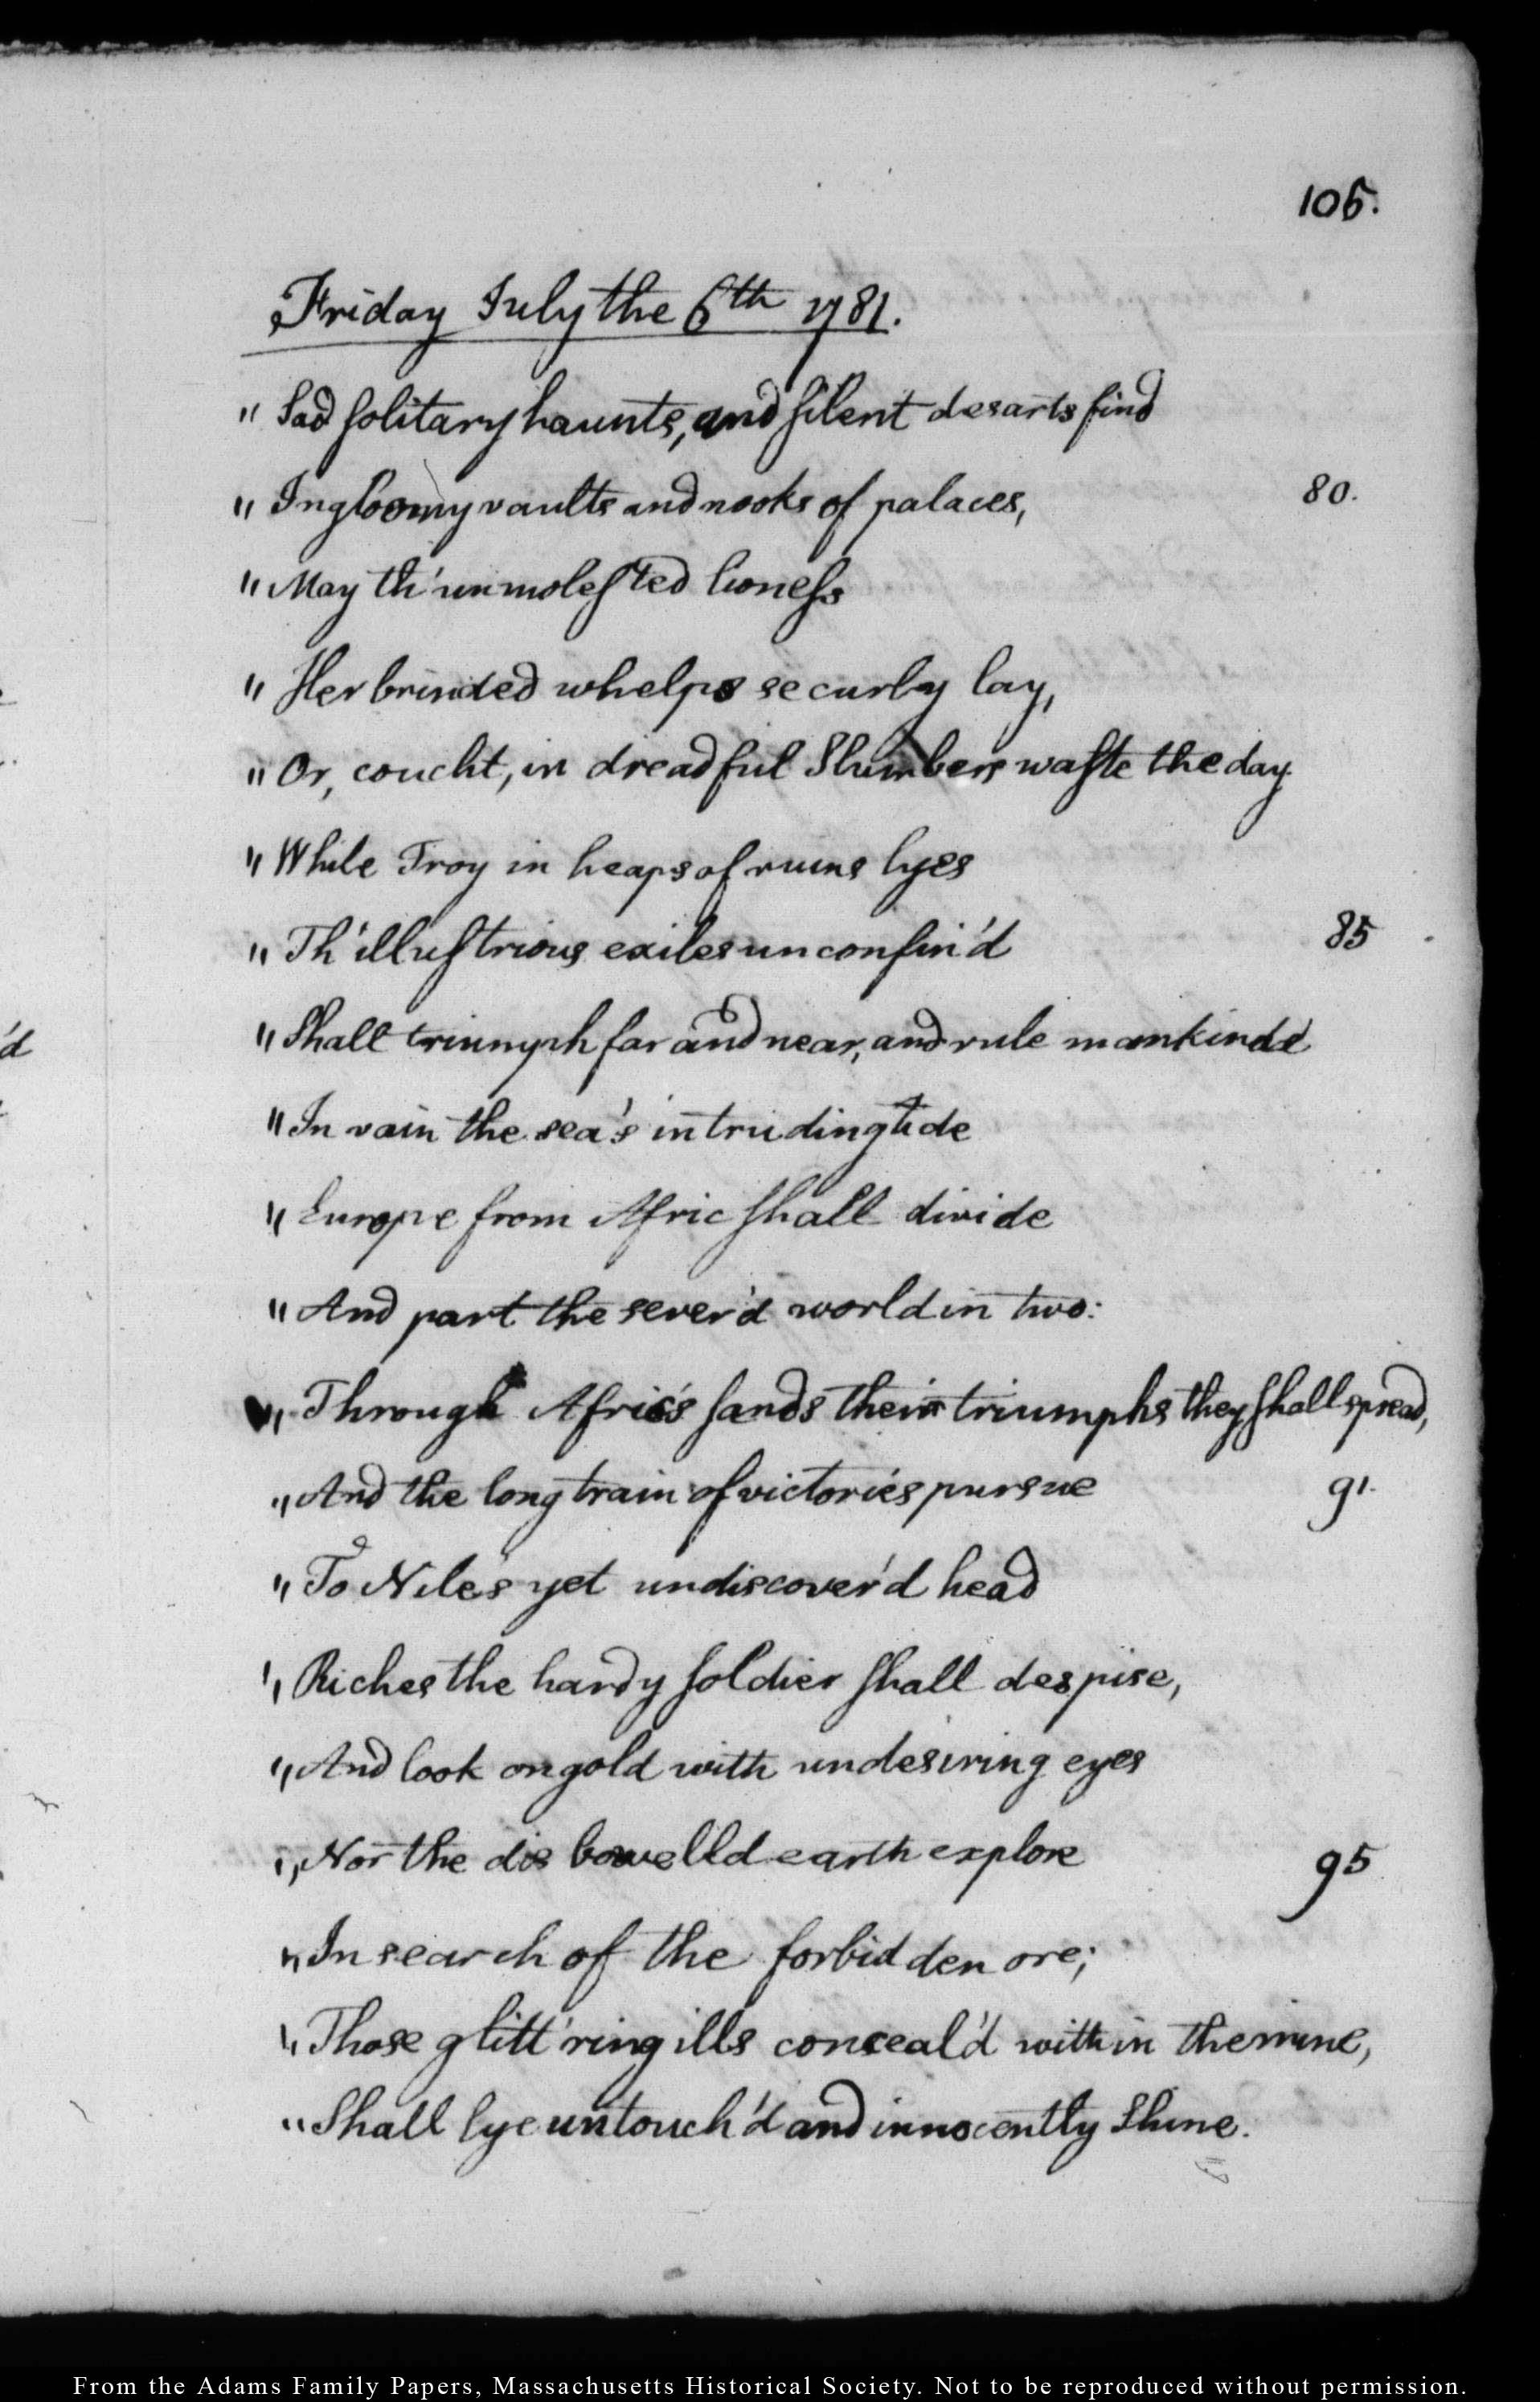 105.
Friday July the 6th 1781.
" Sad solitary haunts, and silent desarts find
" In gloomy vaults and nooks of palaces, 80.
" May th' unmolested lioness
" Her brinded whelps securly lay,
" Or, coucht, in dreadful Slumbers waste the day.
" While Troy in heaps of ruins lyes
" Th' illustrious exiles unconfin'd 85
" Shall triumph far and near, and rule mankind
" In vain the sea's intruding tide
" Europe from Afric shall divide
" And part the sever'd world in two:
" Through Afric's sands their triumphs they shall spread,
" And the long train of victories pursue 91.
" To Nile's yet undiscover'd head
" Riches the hardy soldier shall despise,
" And look on gold with undesiring eyes
" Nor the disbowelld earth explore 95
" In search of the forbidden ore;
" Those glitt'ring ills conceal'd within the mine,
" Shall lye untouch'd and innocently Shine.
From the Adams Family Papers, Massachusetts Historical Society. Not to be reproduced without permission.